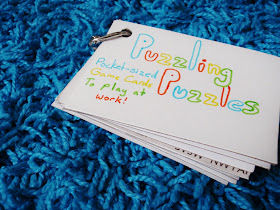 Puzzling
Puzzles
Pocket-sized
Game Cards
To play at
work!